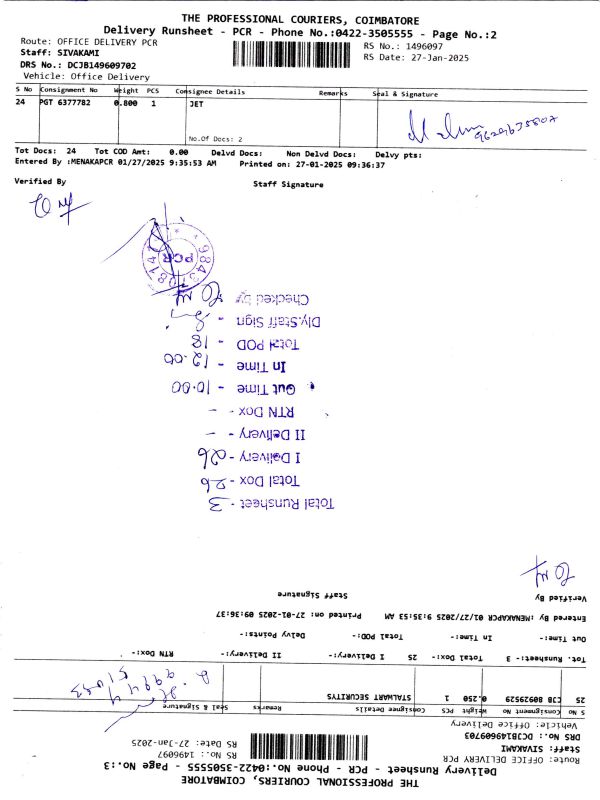 THE PROFESSIONAL COURIERS, COIMBATORE
Delivery Runsheet - PCR - Phone No.:0422-3505555 - Page No.:2
Route: OFFICE DELIVERY PCR
Staff: SIVAKAMI
DRS No.: DCJB149609702
Vehicle: Office Delivery
RS No.: 1496097
RS Date: 27-Jan-2025
S No Consignment No Weight PCS Consignee Details Remarks Seal & Signature
24 PGT 6377782 0.800 1 JET
No.Of Docs: 2
Tot Docs: 24 Tot COD Amt: 0.00 Delvd Docs: Non Delvd Docs: Delvy pts:
Entered By :MENAKAPCR 01/27/2025 9:35:53 AM Printed on: 27-01-2025 09:36:37
Verified By Staff Signature
PCR
Checked by
Dly.Staff Sign -
Total POD - 18
In Time - 12.00
Out Time - 10.00
RTN Dox - -
II Delivery - -
I Delivery - 26
Total Dox - 26
Total Runsheet - 3
THE PROFESSIONAL COURIERS, COIMBATORE
Delivery Runsheet - PCR - Phone No.:0422-3505555 - Page No.:3
Route: OFFICE DELIVERY PCR
Staff: SIVAKAMI
DRS No.: DCJB149609703
Vehicle: Office Delivery
RS No.: 1496097
RS Date: 27-Jan-2025
S No Consignment No Weight PCS Consignee Details Remarks Seal & Signature
25 CJB 80929529 0.250 1 STALWART SECURITYS
Tot. Runsheet:- 3 Total Dox:- 25 I Delivery:- II Delivery:- RTN Dox:-
Out Time:- In Time:- Total POD:- Delvy Points:-
Entered By :MENAKAPCR 01/27/2025 9:35:53 AM Printed on: 27-01-2025 09:36:37
Verified By Staff Signature